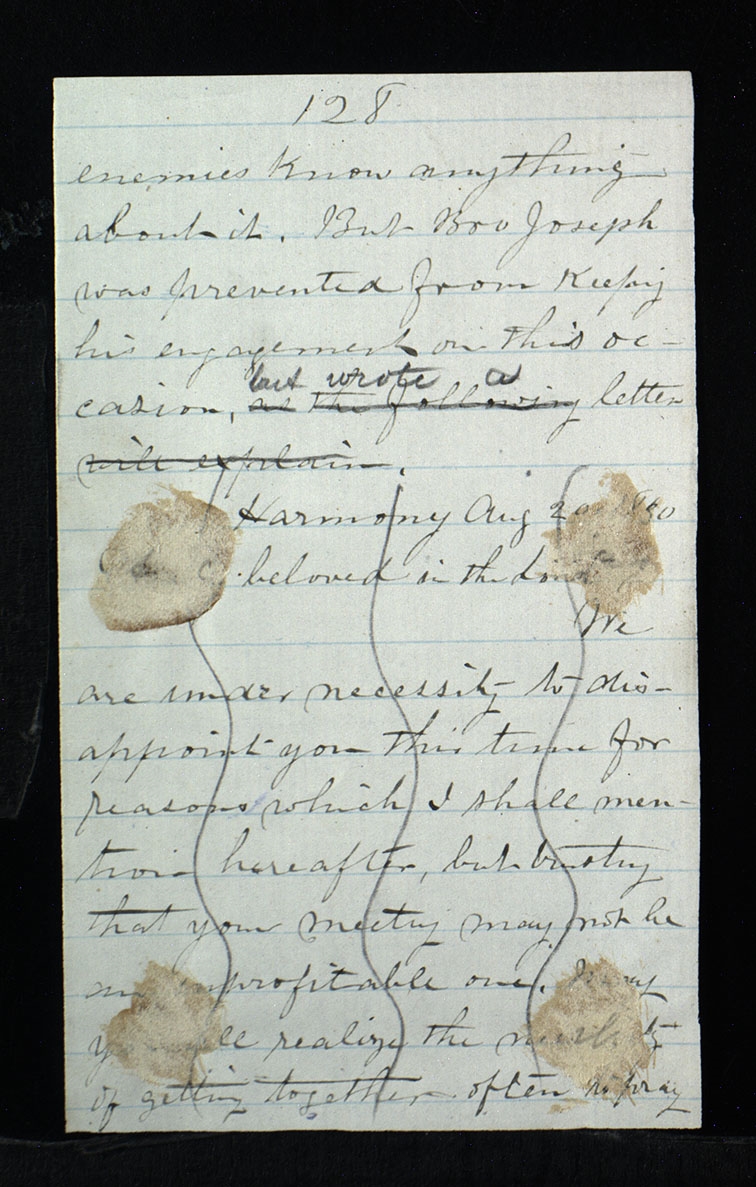 128
enemies Know anything
about it. But Bro Joseph
was prevented from Keepig
his engagement on this oc-
but wrote a
casion, as the following letter
will explain.
Harmony Aug 20
beloved in the Lord
We
are under necessity to dis-
appoint you this time for
reasons which I shall men-
tion hereafter, but trustig
that your meetig may not be
an unprofitable one. may
you all realize the necessity
of getting together often to pray